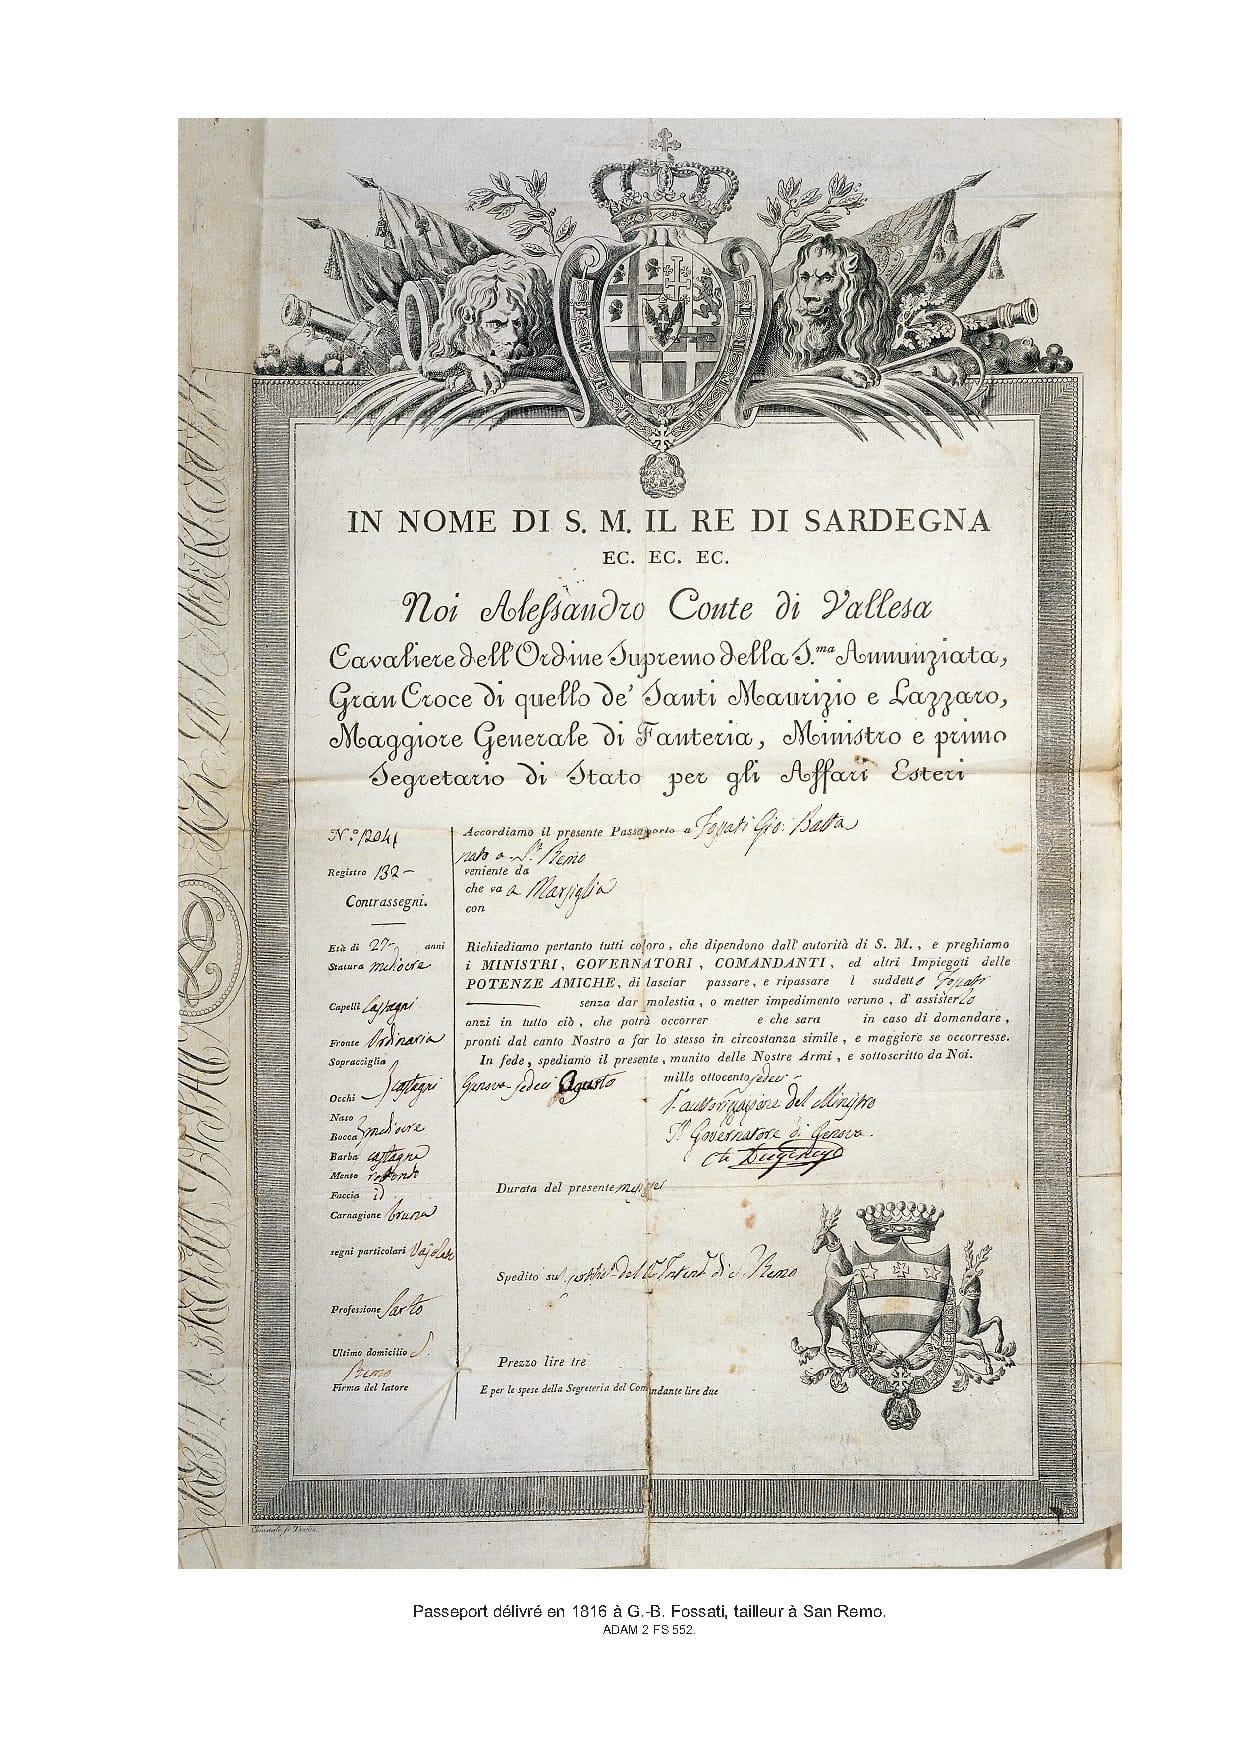 IN NOME DI S. M. IL RE DI SARDEGNA
EC. EC. EC.
Noi Alessandro Conte di Vallesa
Cavaliere dell'Ordine Supremo della S.ma Annunziata,
Gran Croce di quello de' Santi Maurizio e Lazzaro,
Maggiore Generale di Fanteria, Ministro e primo
Segretario di Stato per gli Affari Esteri
N.o 12041
Registro 132
Contrassegni.
Età di 27 anni
Statura mediocre
Capelli Castagni
Fronte Ordinaria
Sopracciglia
Occhi castagni
Naso
Bocca mediocre
Barba castagna
Mento rotondo
Faccia id
Carnagione bruna
segni particolari
Professione Sarto
Ultimo domicilio S.
Remo
Firma del latore
Accordiamo il presente Passaporto a Fossati Gio: Batta
nato a S.n Remo
veniente da
che va a Marsiglia
con
Richiediamo pertanto tutti coloro, che dipendono dall' autorità di S. M., e preghiamo
i MINISTRI, GOVERNATORI, COMANDANTI, ed altri Impiegati delle
POTENZE AMICHE, di lasciar passare, e ripassare l suddetto Fossati
senza dar molestia, o metter impedimento veruno, d' assisterlo
anzi in tutto ciò, che potrà occorrer e che sara in caso di domandare,
pronti dal canto Nostro a far lo stesso in circostanza simile, e maggiore se occorresse.
In fede, spediamo il presente, munito delle Nostre Armi, e sottoscritto da Noi.
Genova sedeci Agosto mille ottocento sedeci
autorizzazione del Ministro
Il Governatore di Genova.
Durata del presente
Spedito sul del Intend di S. Remo
Prezzo lire tre
E per le spese della Segreteria del Comandante lire due
Passeport délivré en 1816 à G.-B. Fossati, tailleur à San Remo.
ADAM 2 FS 552.